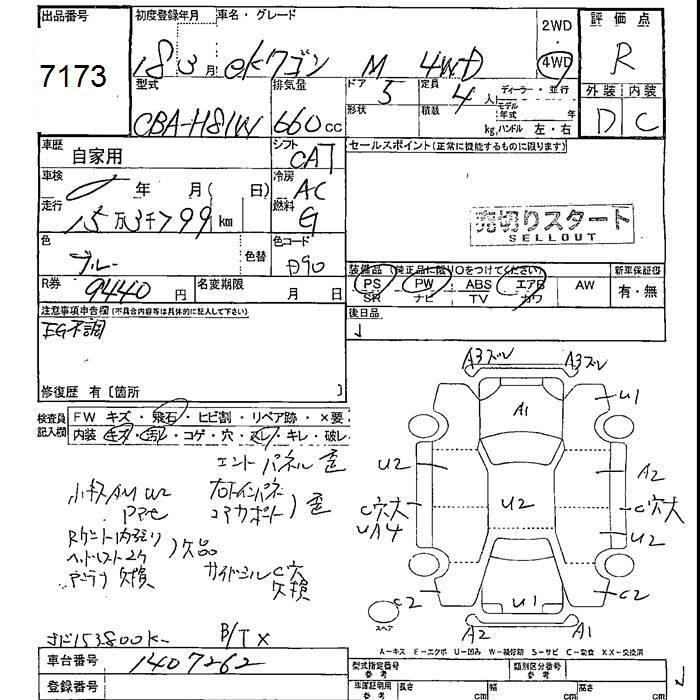 出品番号 初度登録年月 車名・グレード 2WD 評価点
7173 18 3月 ekワゴン M 4WD 4WD R
型式 排気量 ドア 5 定員 4人 ディーラー・並行 外装 内装
CBA-H81W 660cc 形状 積載 kg モデル年式 年 ハンドル 左・右 D C
車歴 自家用 シフト CAT セールスポイント(正常に機能するものに限ります)
車検 年 月( 日) 冷房 AC
走行 15万3千799km 燃料 G
売切りスタート
SELLOUT
色 ブルー 色替 色コード D90
装備品(純正品に限り○をつけてください) 新車保証書
R券 9440円 名変期限 月 日 PS PW ABS エアB AW 有・無
SR ナビ TV カワ
注意事項申告欄(不具合内容等は具体的に記入して下さい) 後日品
EG不調
修復歴 有〔箇所 〕
検査員記入欄 FW キズ・飛石・ヒビ割・リペア跡・×要
内装 キズ・汚レ・コゲ・穴・スレ・キレ・破レ
A3ズレ A3ズレ
A1 U1
フロントパネル 歪
U2 A2
小キズAM U2
コアサポート)歪
U2
C穴大 C穴大
UA4 U2
Rラゲント内張り
ヘッドレスト2ケ)欠品
欠損
サイドシルC穴
欠損
C2 U1 C2
スペア
A2 A1
153800K B/T X
A-キズ E-エクボ U-凹み W-補修跡 S-サビ C-腐食 XX-交換済
車台番号 1407262 型式指定番号 参考 類別区分番号 参考
登録番号 車庫証明用 参考 長さ cm 幅 cm 高さ cm